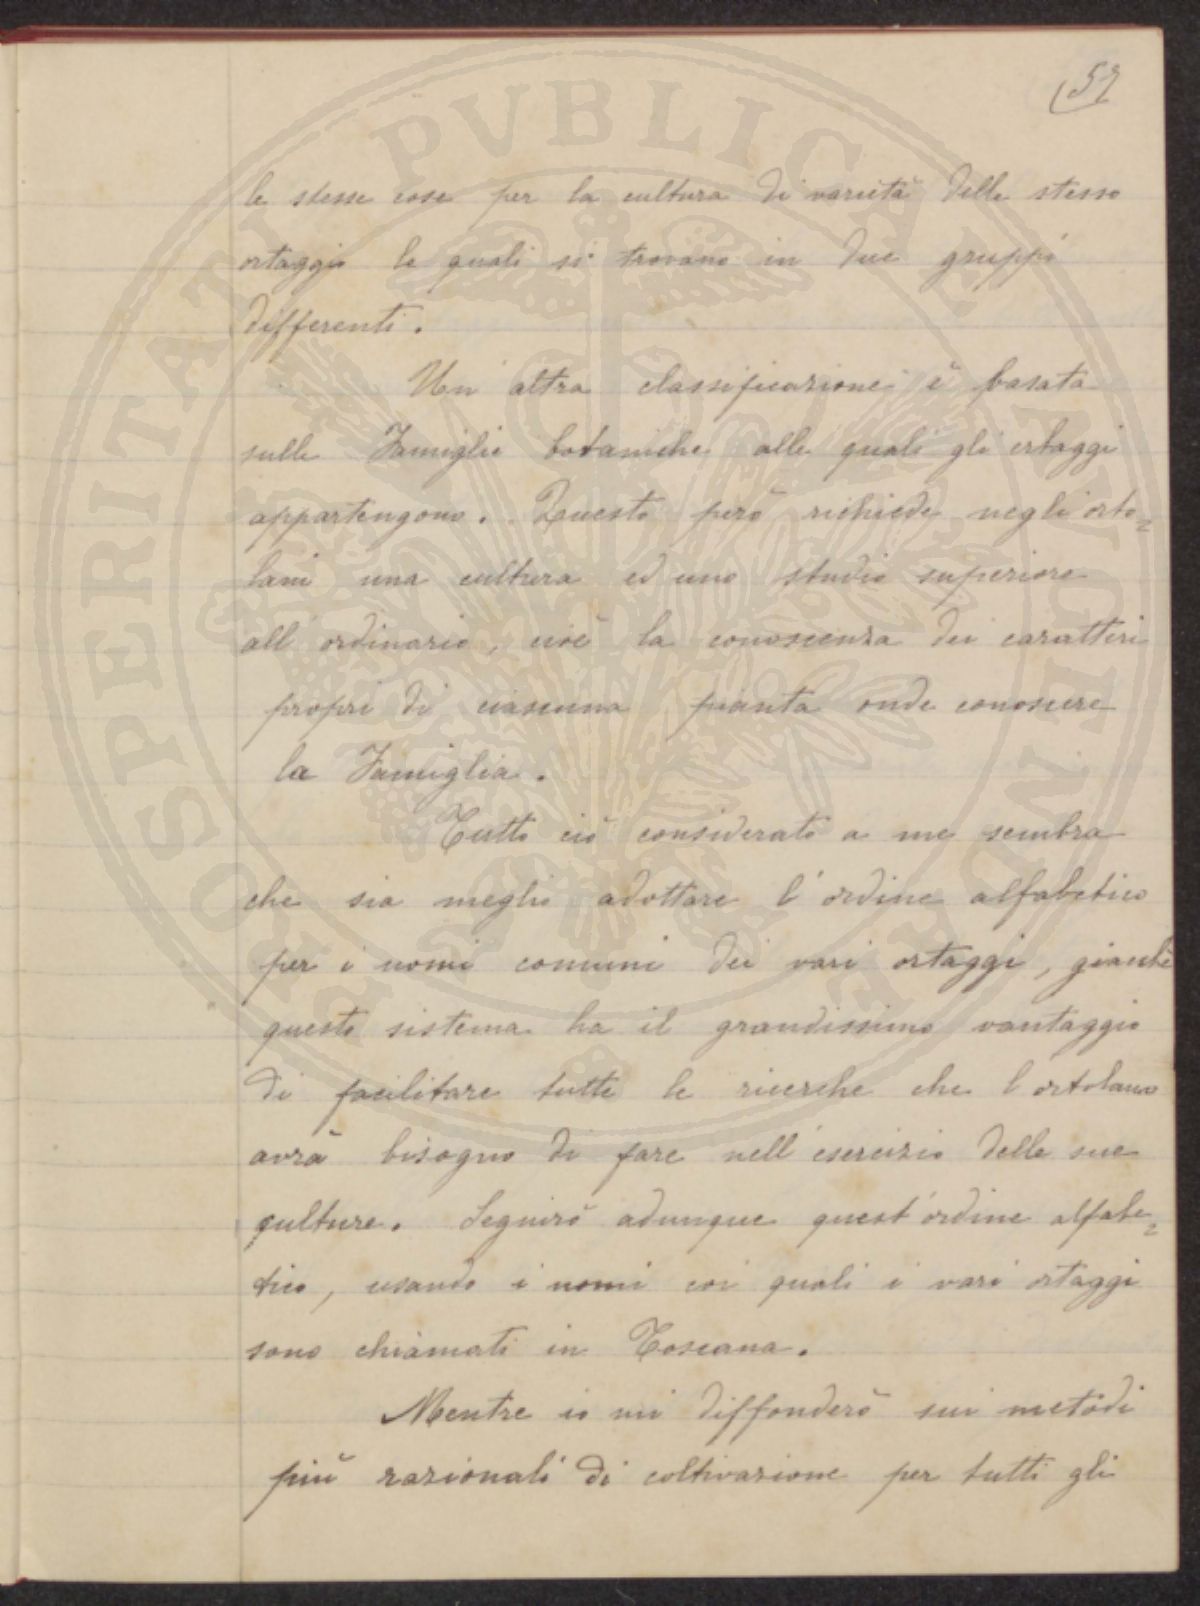 57
le stesse cose per la cultura di varietà dello stesso
ortaggio le quali si trovano in due gruppi
differenti.
Un' altra classificazione è basata
sulle Famiglie botaniche alle quali gli ortaggi
appartengono. Questo però richiede negli orto=
lani una cultura ed uno studio superiore
all' ordinario, cioè la conoscenza dei caratteri
propri di ciascuna pianta onde conoscere
la Famiglia.
Tutto ciò considerato a me sembra
che sia meglio adottare l' ordine alfabetico
per i nomi comuni dei vari ortaggi, giacchè
questo sistema ha il grandissimo vantaggio
di facilitare tutte le ricerche che l' ortolano
avrà bisogno di fare nell' esercizio delle sue
culture. Seguirò adunque quest' ordine alfabe=
tico, usando i nomi coi quali i vari ortaggi
sono chiamati in Toscana.
Mentre io mi diffonderò sui metodi
più razionali di coltivazione per tutti gli
PROSPERITATI PVBLICAE AVGENDAE